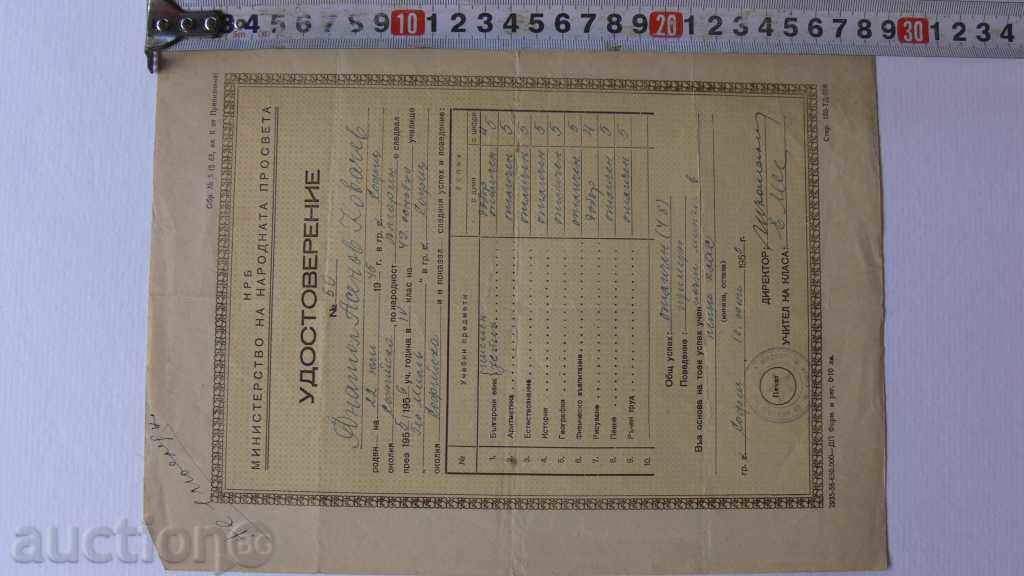 Обр. № 5 (§ 62, ал. II от Правилника)
НРБ
МИНИСТЕРСТВО НА НАРОДНАТА ПРОСВЕТА
УДОСТОВЕРЕНИЕ
№
Асенов Ковачев
роден на 22 юли 1945 г. в гр. София
околия Софийска, по народност българин е следвал
през 195 195 уч. година в IV клас на 42 основно училище
" " в гр. София
околия Софийска и е показал следния успех и поведение:
№ Учебни предмети Успех
с думи с цифри
1. Български език писмен добър 4
устен отличен 5
2. Аритметика отличен 5
3. Естествознание отличен 5
4. История отличен 5
5. География отличен 5
6. Физическо възпитание отличен 5
7. Рисуване добър 4
8. Пение отличен 5
9. Ръчен труд отличен 5
10.
Общ успех: отличен (4,8)
Поведение: примерно
Въз основа на този успех ученикът минава в
пети клас
(минава, остава)
гр. София юни 195 г.
ДИРЕКТОР:
УЧИТЕЛ НА КЛАСА:
Печат
2935-56-630.000—ДП Форм. и рег. 0·10 лв.
Стар. 180-ТД-056
3 4 5 6 7 8 9 10 1 2 3 4 5 6 7 8 9 20 1 2 3 4 5 6 7 8 9 30 1 2 3 4
auction BG